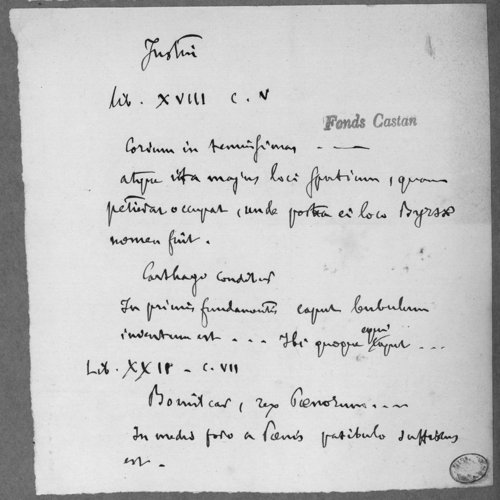 Justin
Lib. XVIII C. V
Fonds Castan
Corium in tenuissimas . —
atque ita majus loci spatium, quam
petierat occupat, unde postea ei loco Byrsæ
nomen fuit.
Carthago conditur
In primis fundamentis caput bubulum
inventum est . . . Ibi quoque equi caput ...
Lib. XXII - C. VII
Bomilcar, rex Pœnorum ....
In medio foro a Pœnis patibulo suffixus
est.